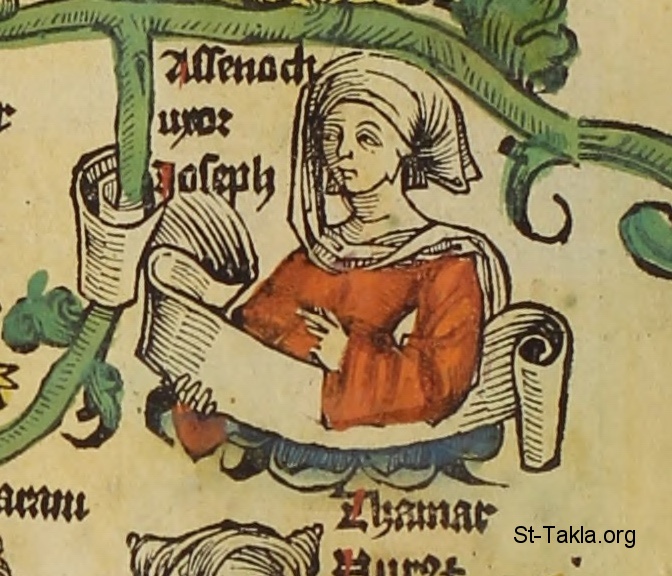 Assenach
uxor
Joseph
aram
Thamar
St-Takla.org